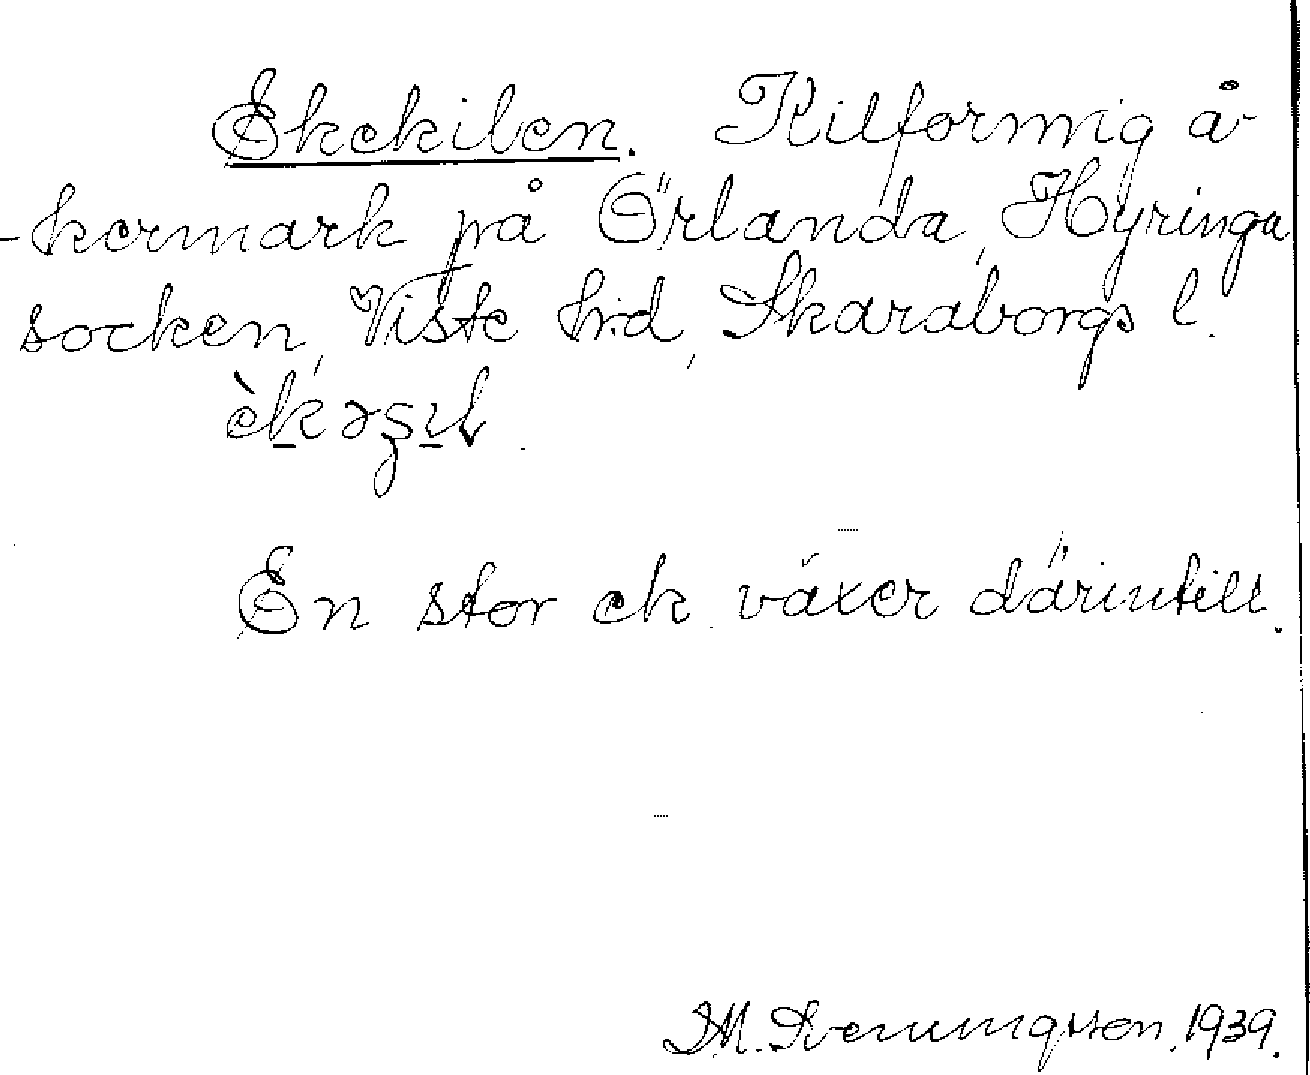 Ekekilen. Kilformig å
-kermark på Örlanda, Hyringa
socken, Viste hrd, Skaraborgs l.
En stor ek växer därintill.
1939.